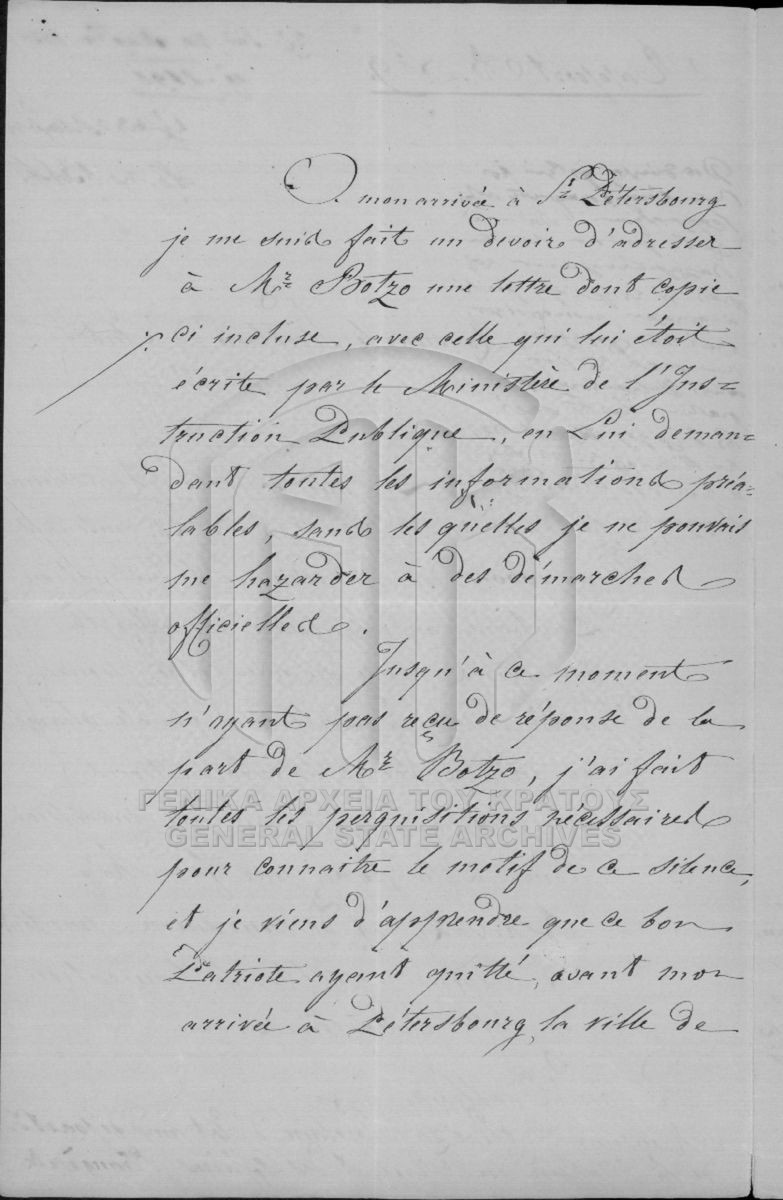 A mon arrivée à St Pétersbourg
je me suis fait un devoir d'adresser
à Mr Botzo une lettre dont copie
ci incluse, avec celle qui lui étoit
écrite par le Ministère de l'Ins=
truction Publique, en Lui deman=
dant toutes les informations préa=
lables, sans les quelles je ne pouvais
me hazarder à des démarches
officielles.
Jusqu'à ce moment
n'ayant pas reçu de réponse de la
part de Mr Botzo, j'ai fait
ΓΕΝΙΚΑ ΑΡΧΕΙΑ ΤΟΥ ΚΡΑΤΟΥΣ
toutes les perquisitions nécessaires
GENERAL STATE ARCHIVES
pour connaitre le motif de ce silence,
et je viens d'apprendre que ce bon
Patriote ayant quitté, avant mon
arrivée à Pétersbourg, la ville de